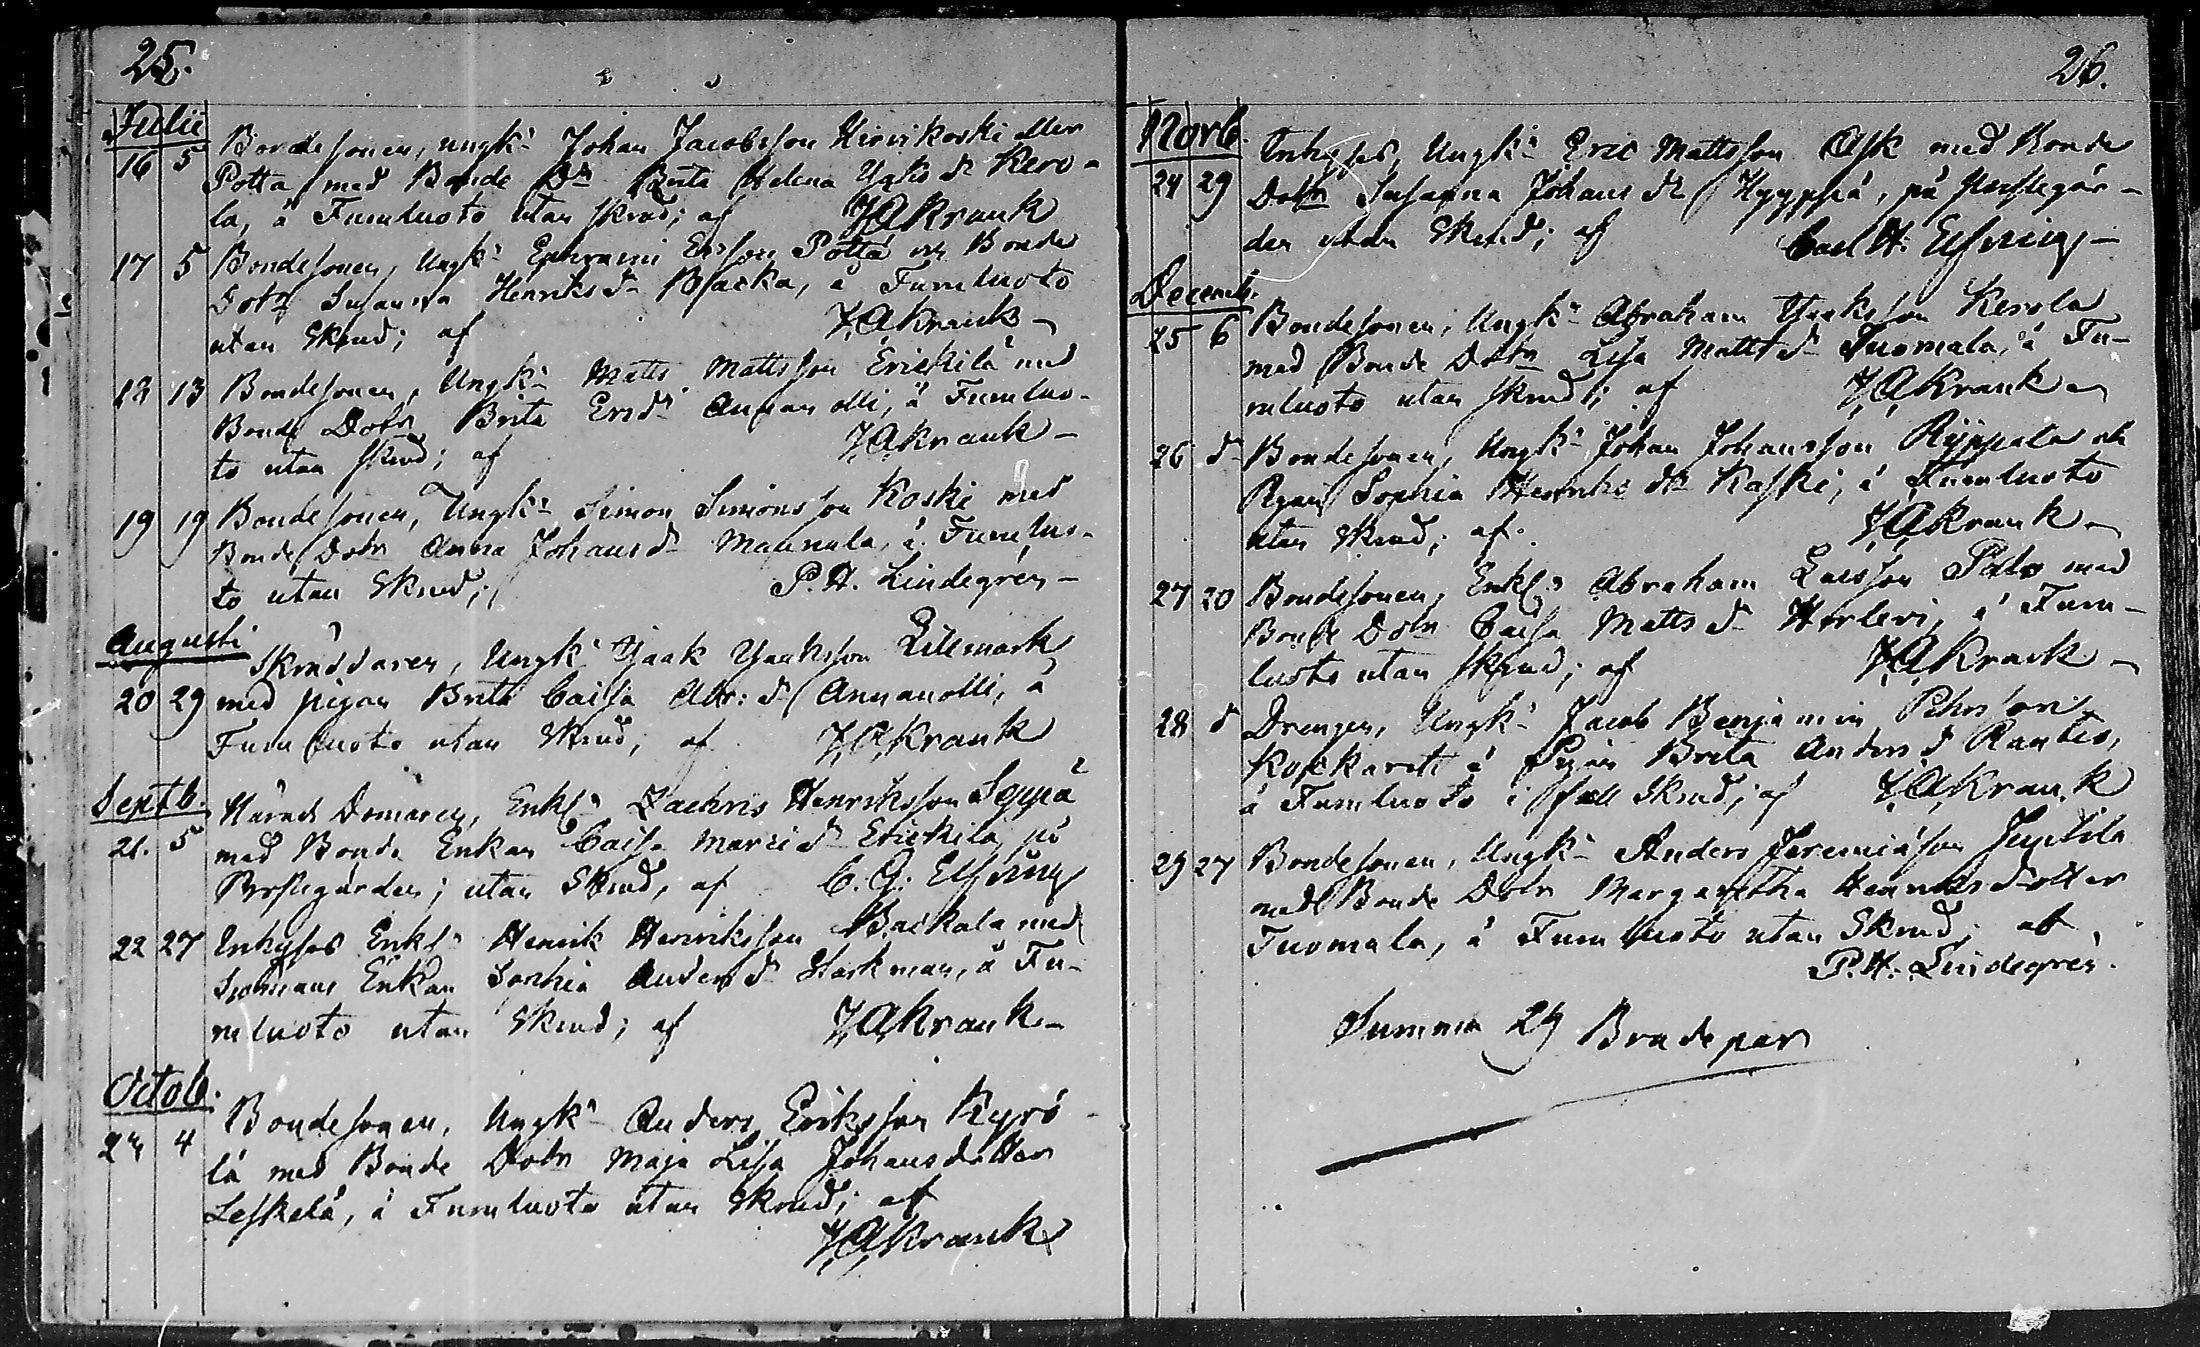 25.
Julii
16 5 Bondesonen, ungk: Johan Jacobsson Hirvikoski eller
Potta med Bonde Dr Brita Helena Isaks dr Kero-
la, å Fumluoto utan skrud; af J,A,Krank
17 5 Bondesonen, Ungk: Ephraim Ersson Potta och Bonde
Dotr Susanna Henriksd: Blacka, å Fumluoto
utan Skrud; af J,A,Krank-
18 13 Bondesonen, Ungk: Matts Mattsson Erickilä med
Bonde Dotr Brita Ersd: Annanolli, å Fumluo-
to utan skrud; af J,A,Krank-
19 19 Bondesonen, Ungk: Simon Simonsson Koski med
Bonde Dotr Anna Johansd: Maunula, å Fumluo-
to utan Skrud; P.H. Lindegrén-
Augusti
Skräddaren, Ungk: Isaak Isaksson Lilemark
20 29 med pigan Brita Caisa Abr: d. Annanolli, å
Fumluoto utan Skrud; af J,A,Krank
Septb.
Härads Domaren, Enkl: Zachris Henriksson Seppä
21. 5 med Bonde Enkan Caisa Marie d: Erickilä, på
Prestgården; utan Skrud, af C. G. Elfving
22 27 Inhyses Enkl: Henrik Henriksson Backala med
Enkan Sophia Anders d: Starkman, å Fu-
mluoto utan Skrud; af J,A,Krank-
Octob.
23 4 Bondesonen, Ungk: Anders Eriksson Kyrö
lä med Bonde Dotr Maja Lisa Johansdotter
Leskelä, å Fumluoto utan Skrud; af
J,A,Krank
26.
Novb.
Inhyses, Ungk: Eric Mattsson Ask med Bonde
24 29 Dotr Susanna Johans dr Hyyppä, på Prestegår-
den utan Skrud; af Carl H: Elfving-
Decemb.
25 6 Bondesonen, Ungk: Abraham Isaksson Kerola
med Bonde Dotr Lisa Matts d: Tuomala, å Fu-
mluoto utan skrud; af J,A,Krank-
26 d: Bondesonen, Ungk: Johan Johansson Ryppala och
Pigan Sophia Henriks dr Kaski, å Fumluoto
utan Skrud; af J,A,Krank-
27 20 Bondesonen, Enkl: Abraham Larsson Palo med
Bonde Dotr Caisa Matts d: Herleri, å Fum-
luoto utan skrud; af J,A,Krank-
28 d: Drengen, Ungk: Jacob Benjamin Pehrsson
å Pigan Brita Anders d Rantio,
å Fumluoto i full Skrud; af J,A,Krank
29 27 Bondesonen, Ungk: Anders Jeremiasson Junttila
med Bonde Dotr Margaretha Henriksdotter
Tuomala, å Fumluoto utan Skrud; af
P.H. Lindegrén.
Summa 29 Brudepar